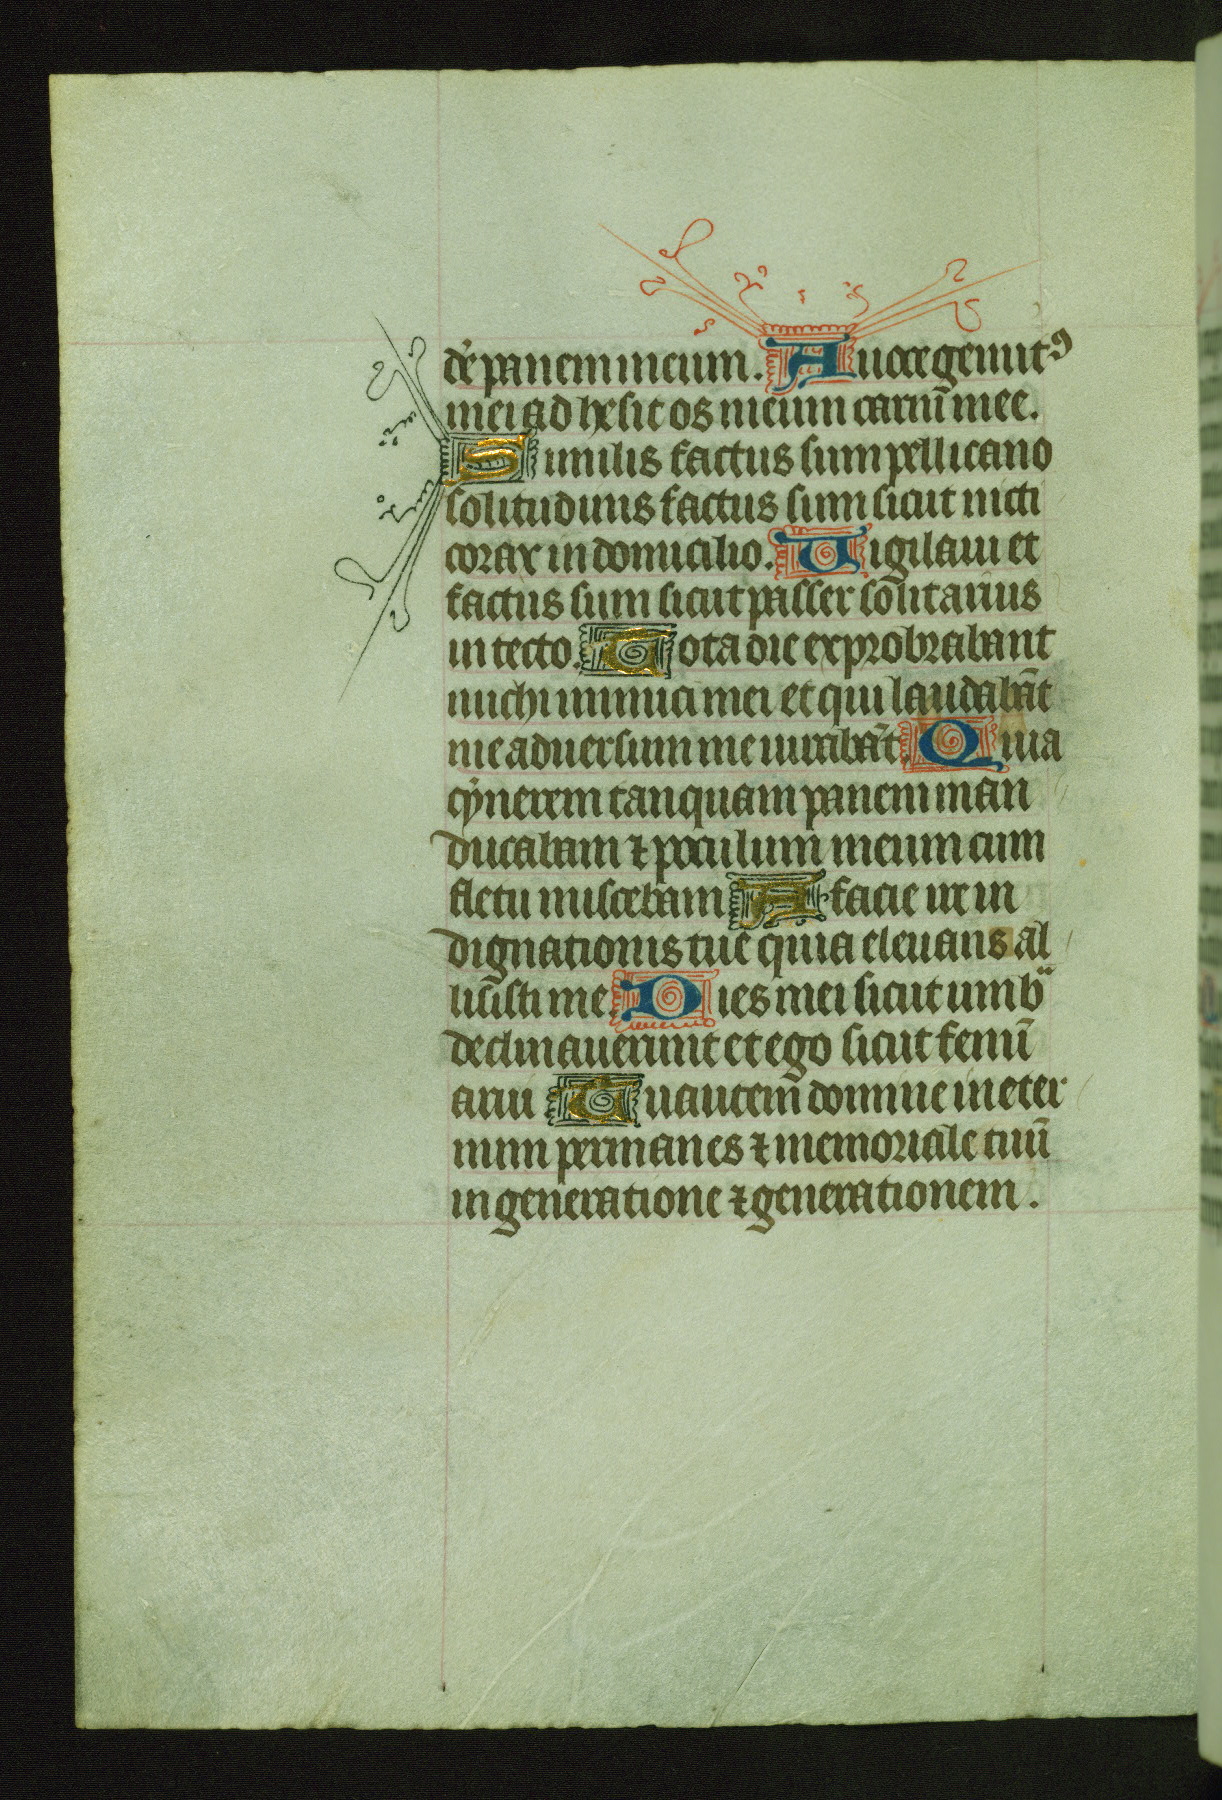 dė panem meum. A uoce gemitꝰ
mei adhesit os meum carnī mee.
Similis factus sum pellicano
solitudinis factus sum sicut nicti
corax in domicilio. Uigilaui et
factus sum sicut passer solitarius
in tecto. Tota die exprobrabant
michi inimici mei et qui laudabāt
me aduersum me iurabāt. Quia
cynerem tanquam panem man
ducabam ⁊ poculum meum cum
fletu miscebam A facie ire in
dignationis tue quia eleuans al
lisisti me. Dies mei sicut umbᵃ
declinauerunt et ego sicut fenū
arui Tu autem domine in eter
num permanes ⁊ memoriale tuū
in generatione ⁊ generationem.